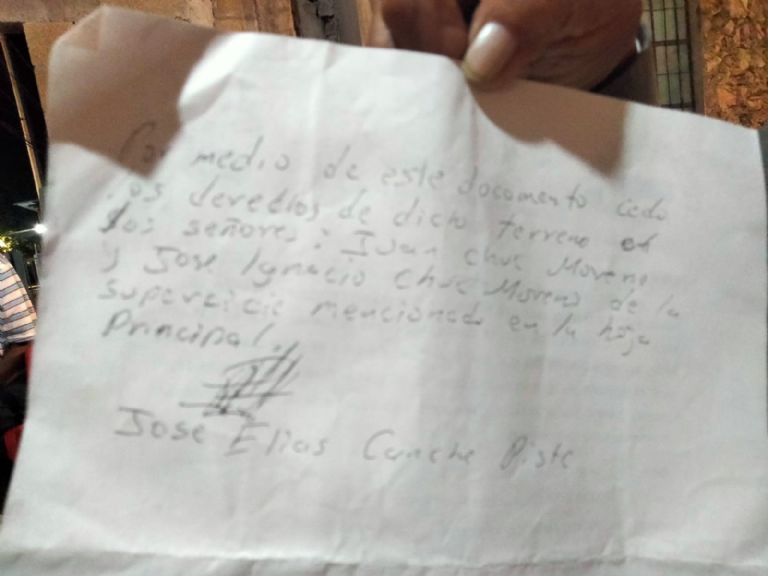 Por medio de este documento cedo
los derechos de dicho terreno a
los señores: Juan Chuc Moreno
y Jose Ignacio Chuc Moreno de la
superficie mencionada en la hoja
Principal.
Jose Elias Canche Piste